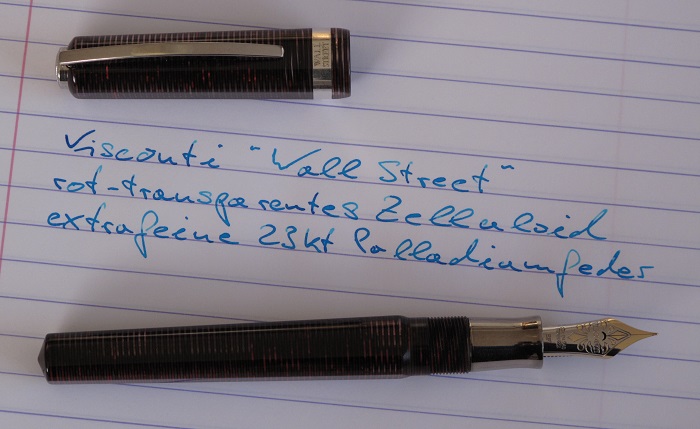 Visconti "Wall Street"
rot-transparentes Zelluloid
extrafeine 23kt Palladiumfeder